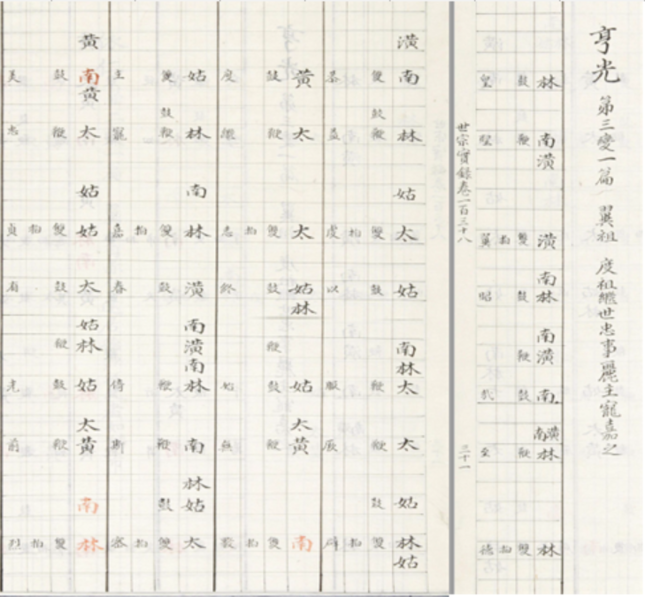 亨光 第三變一篇 翼祖 度祖繼世忠事麗主寵嘉之
林南潢潢南林南潢南潢南林林
鼓鞭雙鼓鞭鼓鞭雙
拍拍
皇聖翼昭哉至德
世宗實錄卷一百三十八 三十一
潢南林姑太姑南林太太姑林姑
雙鼓鞭雙鼓鞭鞭鼓雙
拍拍
基益虔以服厥辟
黃太太姑林姑太黃南
鼓鞭雙鼓鞭鼓鞭雙
拍拍
度繼志終始無斁
姑林南林潢南潢南林南林姑太
雙鼓鞭雙鼓鞭鞭鼓雙
拍拍
主寵嘉春倚斯密
黃南黃太姑姑太姑林姑太黃南林
鼓鞭雙鼓鞭鼓鞭雙
拍拍
美忠貞有光前烈